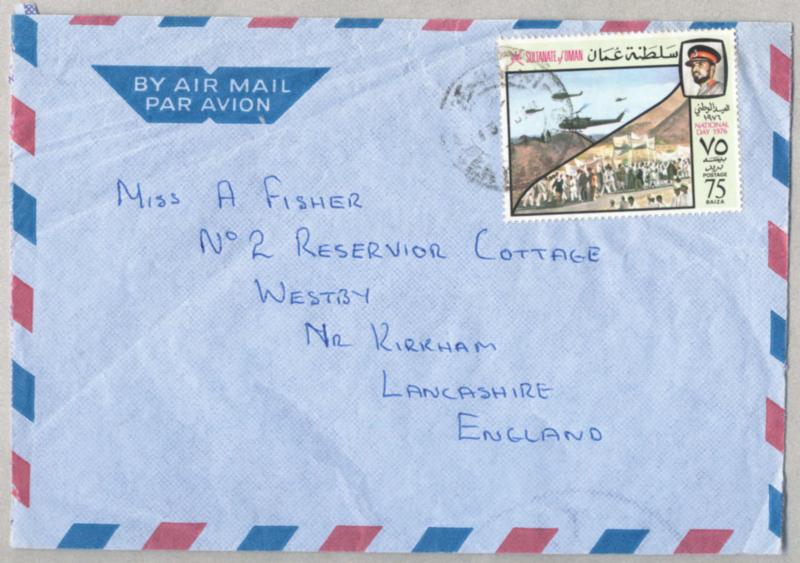 BY AIR MAIL
PAR AVION
SULTANATE of OMAN سلطنة عمان
العيد الوطني
١٩٧٦
NATIONAL
DAY 1976
٧٥
بيسة
بريد
POSTAGE
75
BAIZA
MISS A FISHER
Nº 2 RESERVIOR COTTAGE
WESTBY
NR KIRKHAM
LANCASHIRE
ENGLAND